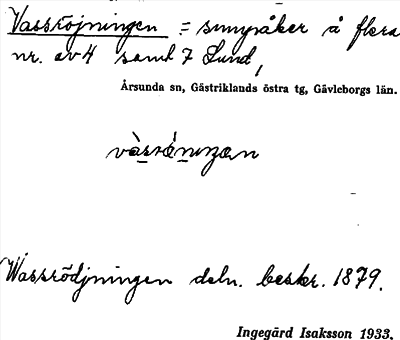 Vassröjningen = sumpåker å flera
nr. av 4 samt 7 Lund,
Årsunda sn, Gästriklands östra tg, Gävleborgs län.
Wassrödjningen deln. beskr. 1879.
Ingegärd Isaksson 1933.